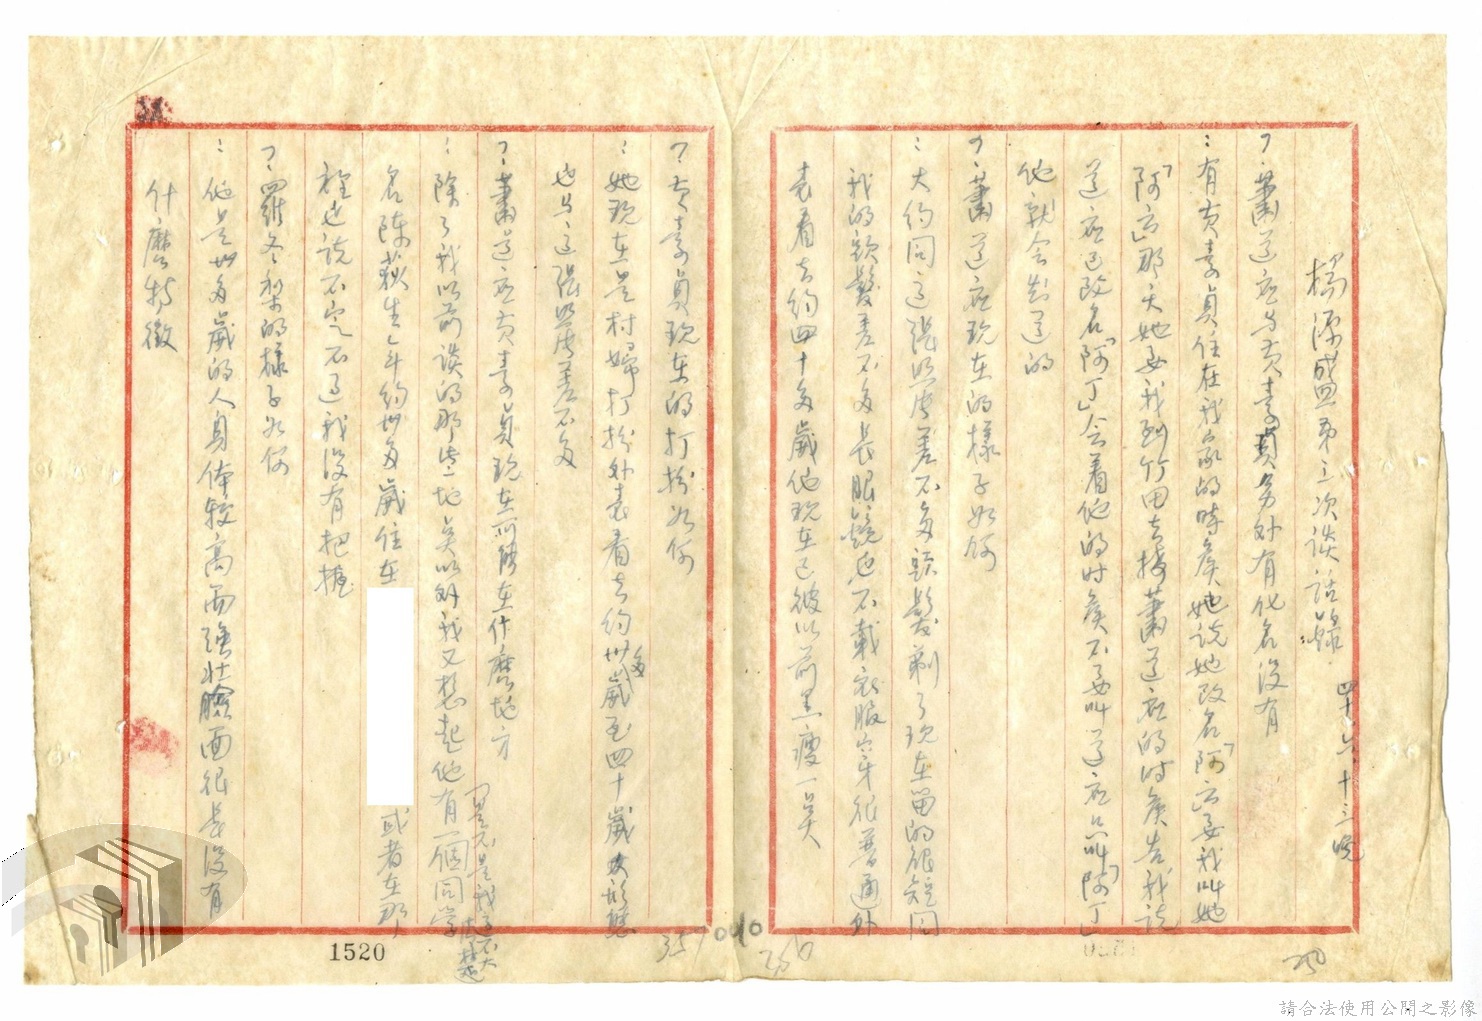 楊源盛第三次談話錄 四十、六、十三晚
？：蕭道应与黄素貞另外有化名沒有
：有黄素貞住在我家的時候她說她改名「阿云」要我叫她
「阿云」那天她要我到竹田去接蕭道应的时候告我說
道应已改名「阿丁」会着他的时候不要叫道应只叫「阿丁」
他就会知道的
？：蕭道应現在的樣子如何
：大約同这張照片差不多头髮剃了現在留的很短同
我的頭髮差不多長眼鏡也不戴衣服穿得很普通外
表看去約四十多歲他現在已彼以前黑瘦一点
？：黄素貞現在的打扮如何
：她現在是村婦打扮外表看去約卅多歲至四十歲女形態
也与这張照片差不多
？：蕭道应黄素貞現在可能在什麽地方
：除了我以前談的那些地点以外我又想起他有一個同学
名陳荻生年約卅多歲住在 或者在那
裡也說不定不过我沒有把握
？：羅冬梨的樣子如何
：他是卅多歲的人身体較高而強壮臉面很長沒有
什麽特徵
1520
357
040
請合法使用公開之影像